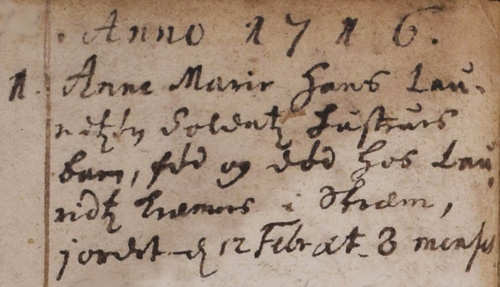 Anno 1716.
1. Anne Marie Hans Lau-
ritzen Soldatz Hustrues
barn, fød og død hos Lau-
ridtz i Strøm,
jordet d 12 Febr æt. 3 menses